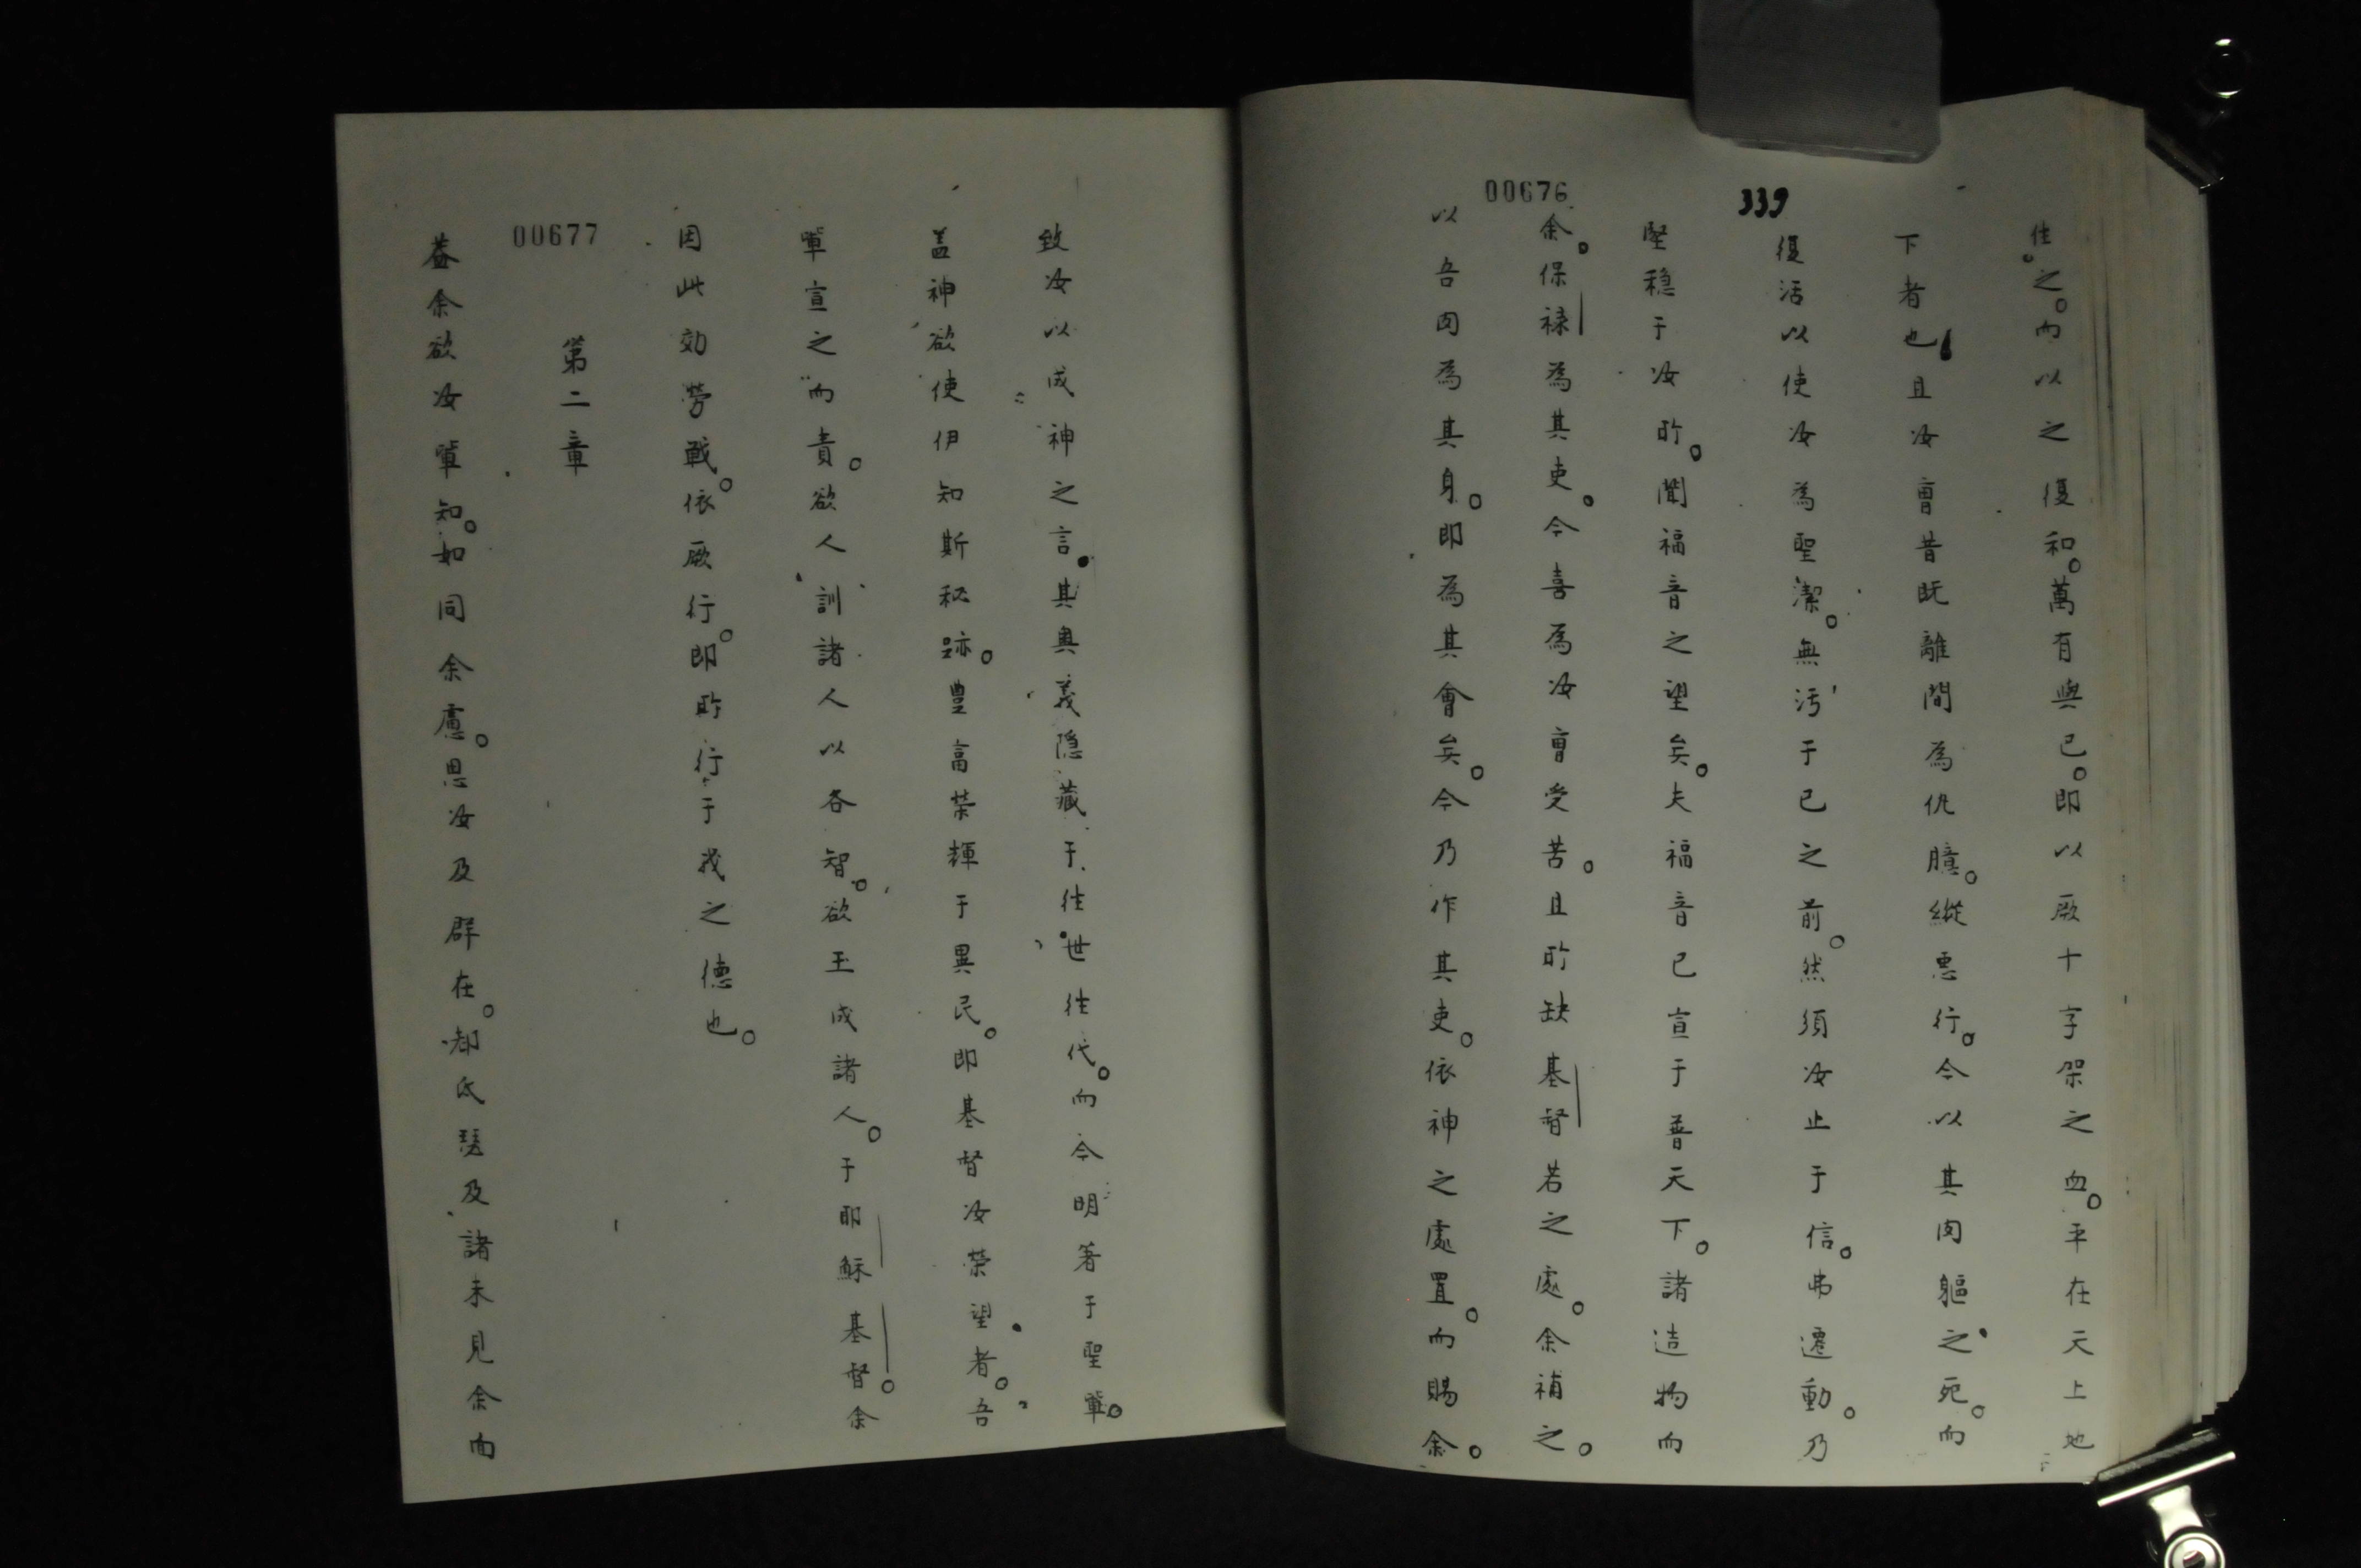 00676
339
住。之。而以之復和。萬有與已。即以厥十字架之血。平在天上地
下者也且汝曾昔既離間為仇臆。縱悪行。今以其肉軀之死。而
復活以使汝為聖潔。無污于已之前。然須汝止于信。弗遷動。乃
堅穏于汝所。聞福音之望矣。夫福音已宣于普天下。諸造物而
余。保禄為其吏。今喜為汝曾受苦。且所缺基督若之處。余補之。
以吾肉為其身。即為其會矣。今乃作其吏。依神之處置。而賜余。
致汝以成神之言。其奥義隠藏于往世往代。而今明著于聖輩。
盖神欲使伊知斯秘跡。豊富榮輝于異民。即基督汝榮望者。吾
輩宣之而責。欲人訓諸人以各智。欲玉成諸人。于耶穌基督。余
因此効劳戰。依厥行。即所行于我之德也。
00677
第二章
葢余欲汝輩知。如同余慮。思汝及群在。都氏瑟及諸未見余面